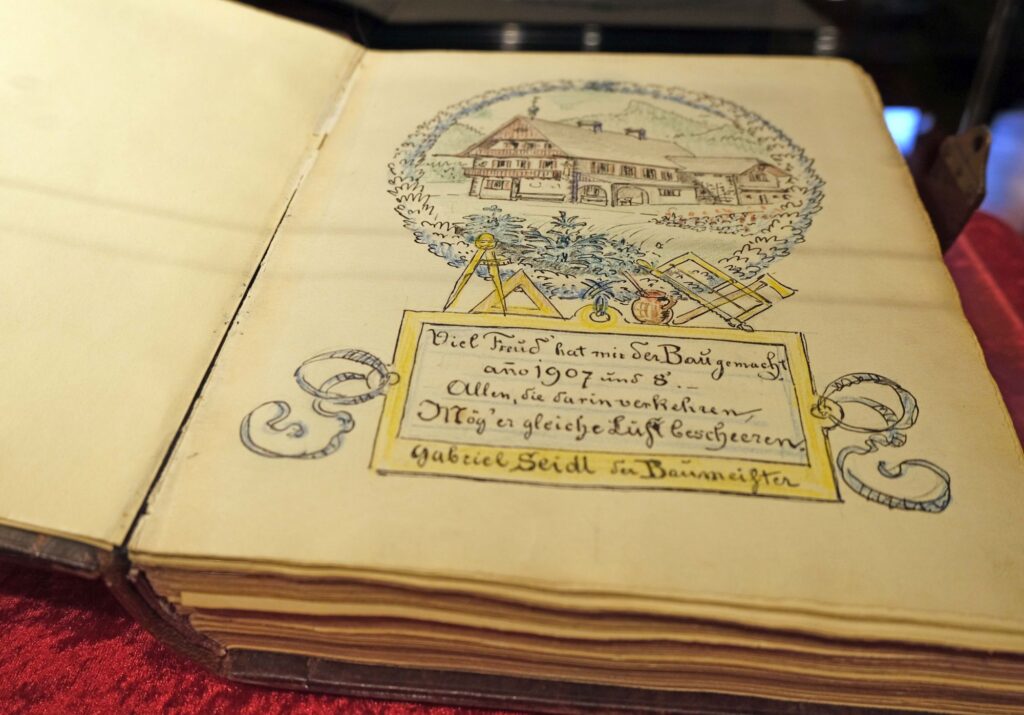 Viel Freud' hat mir der Bau gemacht,
año 1907 und 8.—
Allen, die darin verkehren,
Mög' er gleiche Lust bescheeren.
Gabriel Seidl der Baumeister